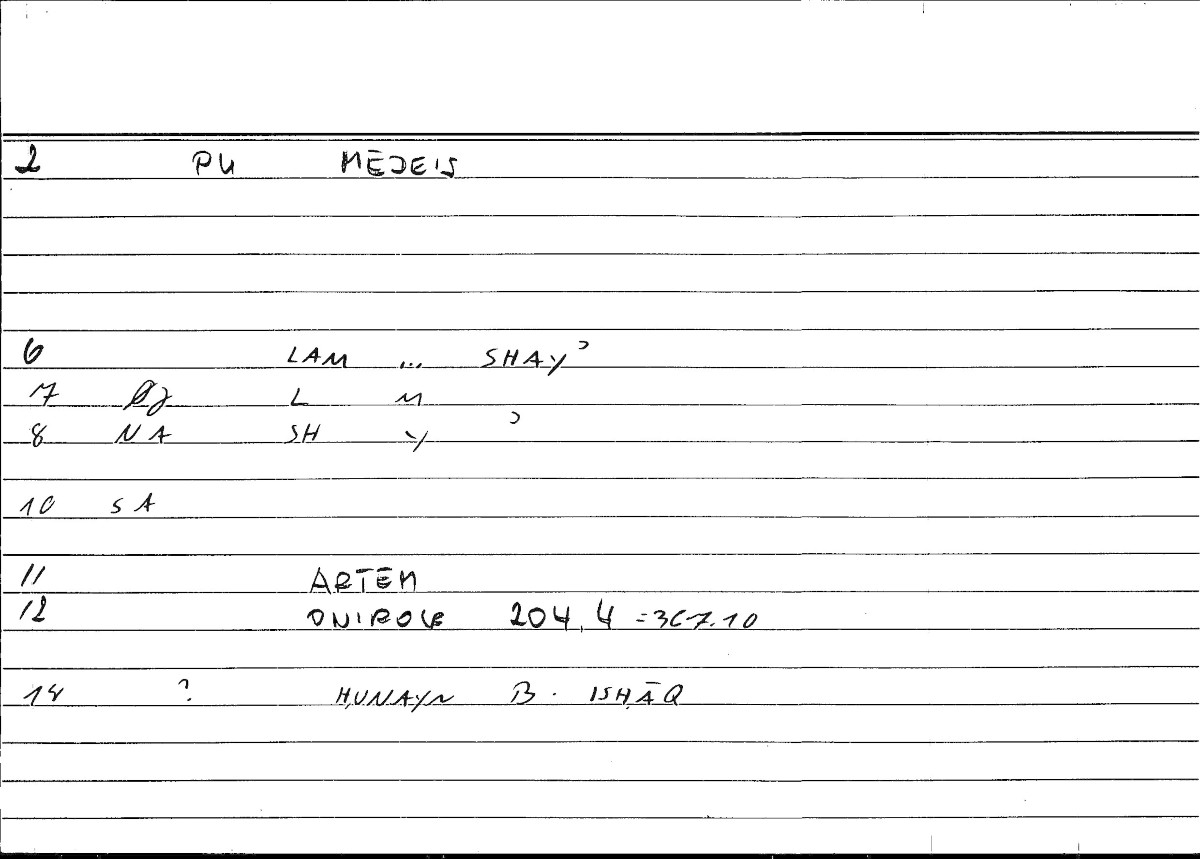 2 PU MĒDEIS
6 LAM ... SHAYʾ
7 L M
8 NA SH Y ʾ
10 SA
11 ARTEM
12 ONIROCR 204,4 =367.10
14 ? ḤUNAYN B. ISḤĀQ